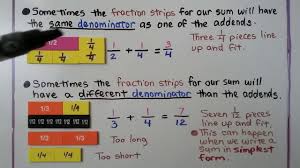 Sometimes the fraction strips for our sum will have
the same denominator as one of the addends.
1/2
1/4
1/4 1/4 1/4
1/2 + 1/4 = 3/4
Three 1/4 pieces line
up and fit.
Sometimes the fraction strips for our sum will
have a different denominator than the addends.
1/3 1/4
1/12 1/12 1/12 1/12 1/12 1/12 1/12
1/3 + 1/4 = 7/12
Seven 1/12 pieces
line up and fit.
1/3 1/3
Too long
1/4 1/4
Too short
This can happen when
we write a sum in
simplest form.